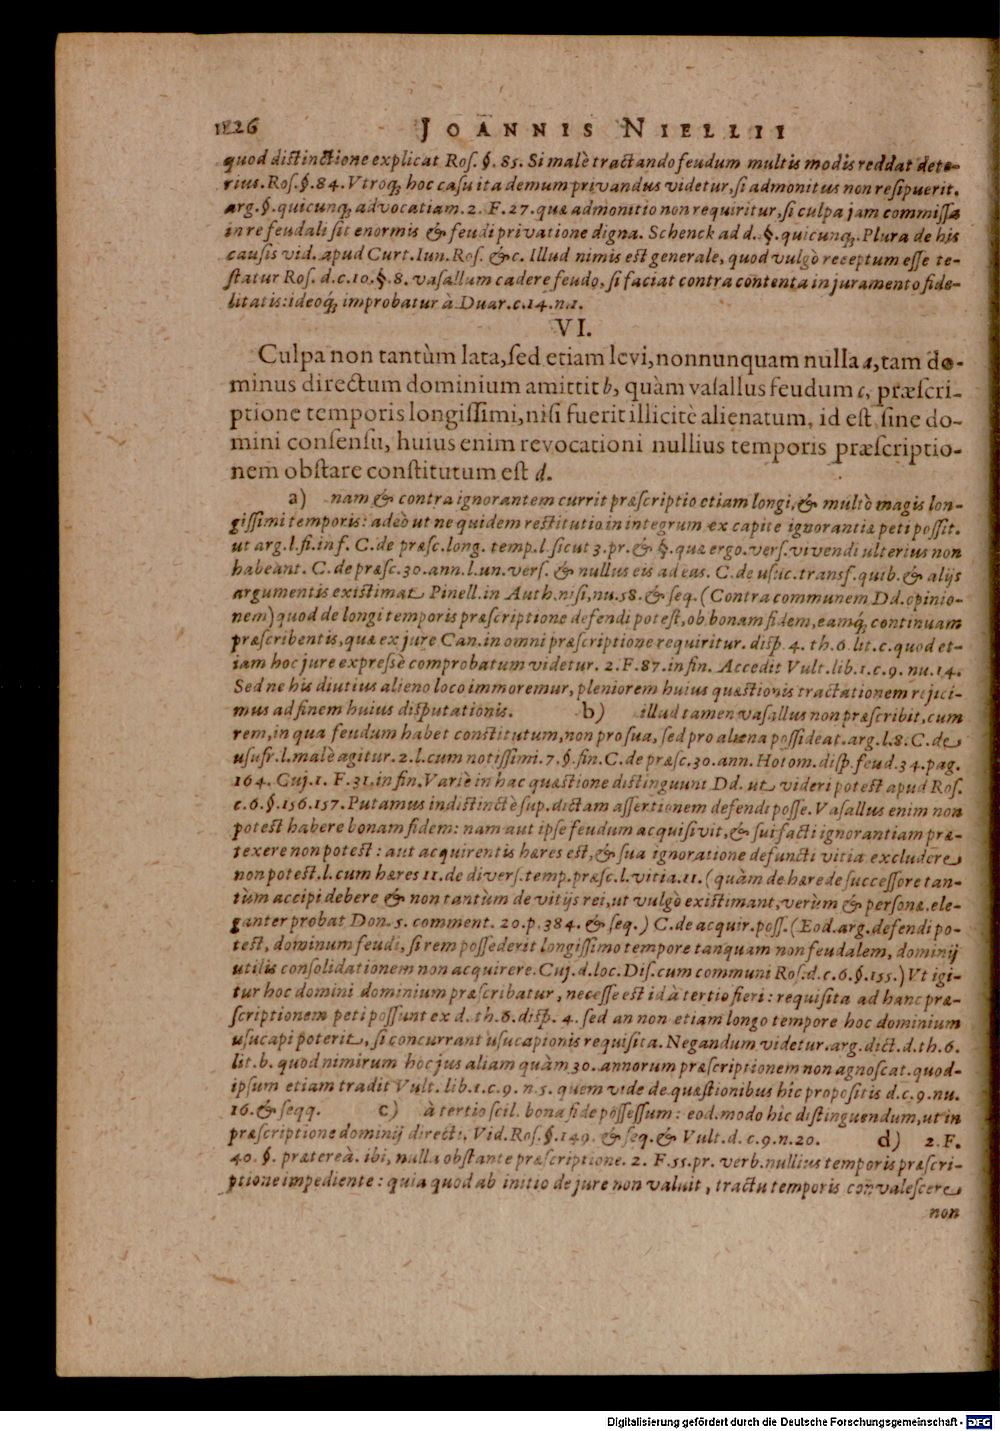 1226 JOANNIS NIELLII
quod distinctione explicat Ros. §. 85. Si malè tractando feudum multis modis reddat dete-
rius. Ros. §. 84. Vtroq; hoc casu ita demum privandus videtur, si admonitus non resipuerit.
arg. §. quicunq; advocatiam. 2. F. 27. quæ admonitio non requiritur, si culpa jam commissa
in re feudali sit enormis & feudi privatione digna. Schenck ad d. §. quicunq;. Plura de his
causis vid. apud Curt. Iun. Ros. &c. Illud nimis est generale, quod vulgò receptum esse te-
statur Ros. d. c. 10. §. 8. vasallum cadere feudo, si faciat contra contenta in juramento fide-
litatis: ideoq; improbatur à Duar. c. 14. n. 1.
VI.
Culpa non tantùm lata, sed etiam levi, nonnunquam nulla a, tam do-
minus directum dominium amittit b, quàm vasallus feudum c, præscri-
ptione temporis longissimi, nisi fuerit illicitè alienatum, id est sine do-
mini consensu, huius enim revocationi nullius temporis præscriptio-
nem obstare constitutum est d.
a) nam & contra ignorantem currit præscriptio etiam longi, & multò magis lon-
gissimi temporis: adeò ut ne quidem restitutio in integrum ex capite ignorantiæ peti possit.
ut arg. l. fi. inf. C. de præsc. long. temp. l. sicut 3. pr. & §. quæ ergo. vers. vivendi ulterius non
habeant. C. de præsc. 30. ann. l. un. vers. & nullus eis ad eas. C. de usuc. transf. quib. & alijs
argumentis existimat Pinell. in Auth. nisi, nu. 58. & seq. (Contra communem Dd. opinio-
nem) quod de longi temporis præscriptione defendi potest, ob bonam fidem, eamq; continuam
præscribentis, quæ ex jure Can. in omni præscriptione requiritur. disp. 4. th. 6. lit. c. quod et-
iam hoc jure expressè comprobatum videtur. 2. F. 87. in fin. Accedit Vult. lib. 1. c. 9. nu. 14.
Sed ne his diutius alieno loco immoremur, pleniorem huius quæstionis tractationem rejici-
mus ad finem huius disputationis. b) illud tamen vasallus non præscribit, cum
rem, in qua feudum habet constitutum, non pro sua, sed pro aliena possideat. arg. l. 8. C. de
usufr. l. malè agitur. 2. l. cum notissimi. 7. §. fin. C. de præsc. 30. ann. Hotom. disp. feud. 34. pag.
164. Cuj. 1. F. 31. in fin. Variè in hac quæstione distinguunt Dd. ut videri potest apud Ros.
c. 6. §. 156. 157. Putamus indistinctè sup. dictam assertionem defendi posse. Vasallus enim non
potest habere bonam fidem: nam aut ipse feudum acquisivit, & sui facti ignorantiam præ-
texere non potest: aut acquirentis hæres est, & sua ignoratione defuncti vitia excludere
non potest. l. cum hæres 11. de divers. temp. præsc. l. vitia. 11. (quàm de hærede successore tan-
tùm accipi debere & non tantùm de vitijs rei, ut vulgò existimant, verùm & personæ. ele-
ganter probat Don. 5. comment. 20. p. 384. & seq.) C. de acquir. poss. (Eod. arg. defendi po-
test, dominum feudi, si rem possederit longissimo tempore tanquam non feudalem, dominij
utilis consolidationem non acquirere. Cuj. d. loc. Dis. cum communi Ros. d. c. 6. §. 155.) Vt igi-
tur hoc domini dominium præscribatur, necesse est id à tertio fieri: requisita ad hanc præ-
scriptionem peti possunt ex d. th. 6. disp. 4. sed an non etiam longo tempore hoc dominium
usucapi poterit, si concurrant usucapionis requisita. Negandum videtur. arg. dict. d. th. 6.
lit. b. quod nimirum hoc jus aliam quàm 30. annorum præscriptionem non agnoscat. quod-
ipsum etiam tradit Vult. lib. 1. c. 9. n. 5. quem vide de quæstionibus hîc propositis d. c. 9. nu.
16. & seqq. c) à tertio scil. bona fide possessum: eod. modo hîc distinguendum, ut in
præscriptione dominij directi, Vid. Ros. §. 149. & seq. & Vult. d. c. 9. n. 20. d) 2. F.
40. §. prætereà. ibi, nulla obstante præscriptione. 2. F. 55. pr. verb. nullius temporis præscri-
ptione impediente: quia quod ab initio de jure non valuit, tractu temporis convalescere
non
Digitalisierung gefördert durch die Deutsche Forschungsgemeinschaft - DFG